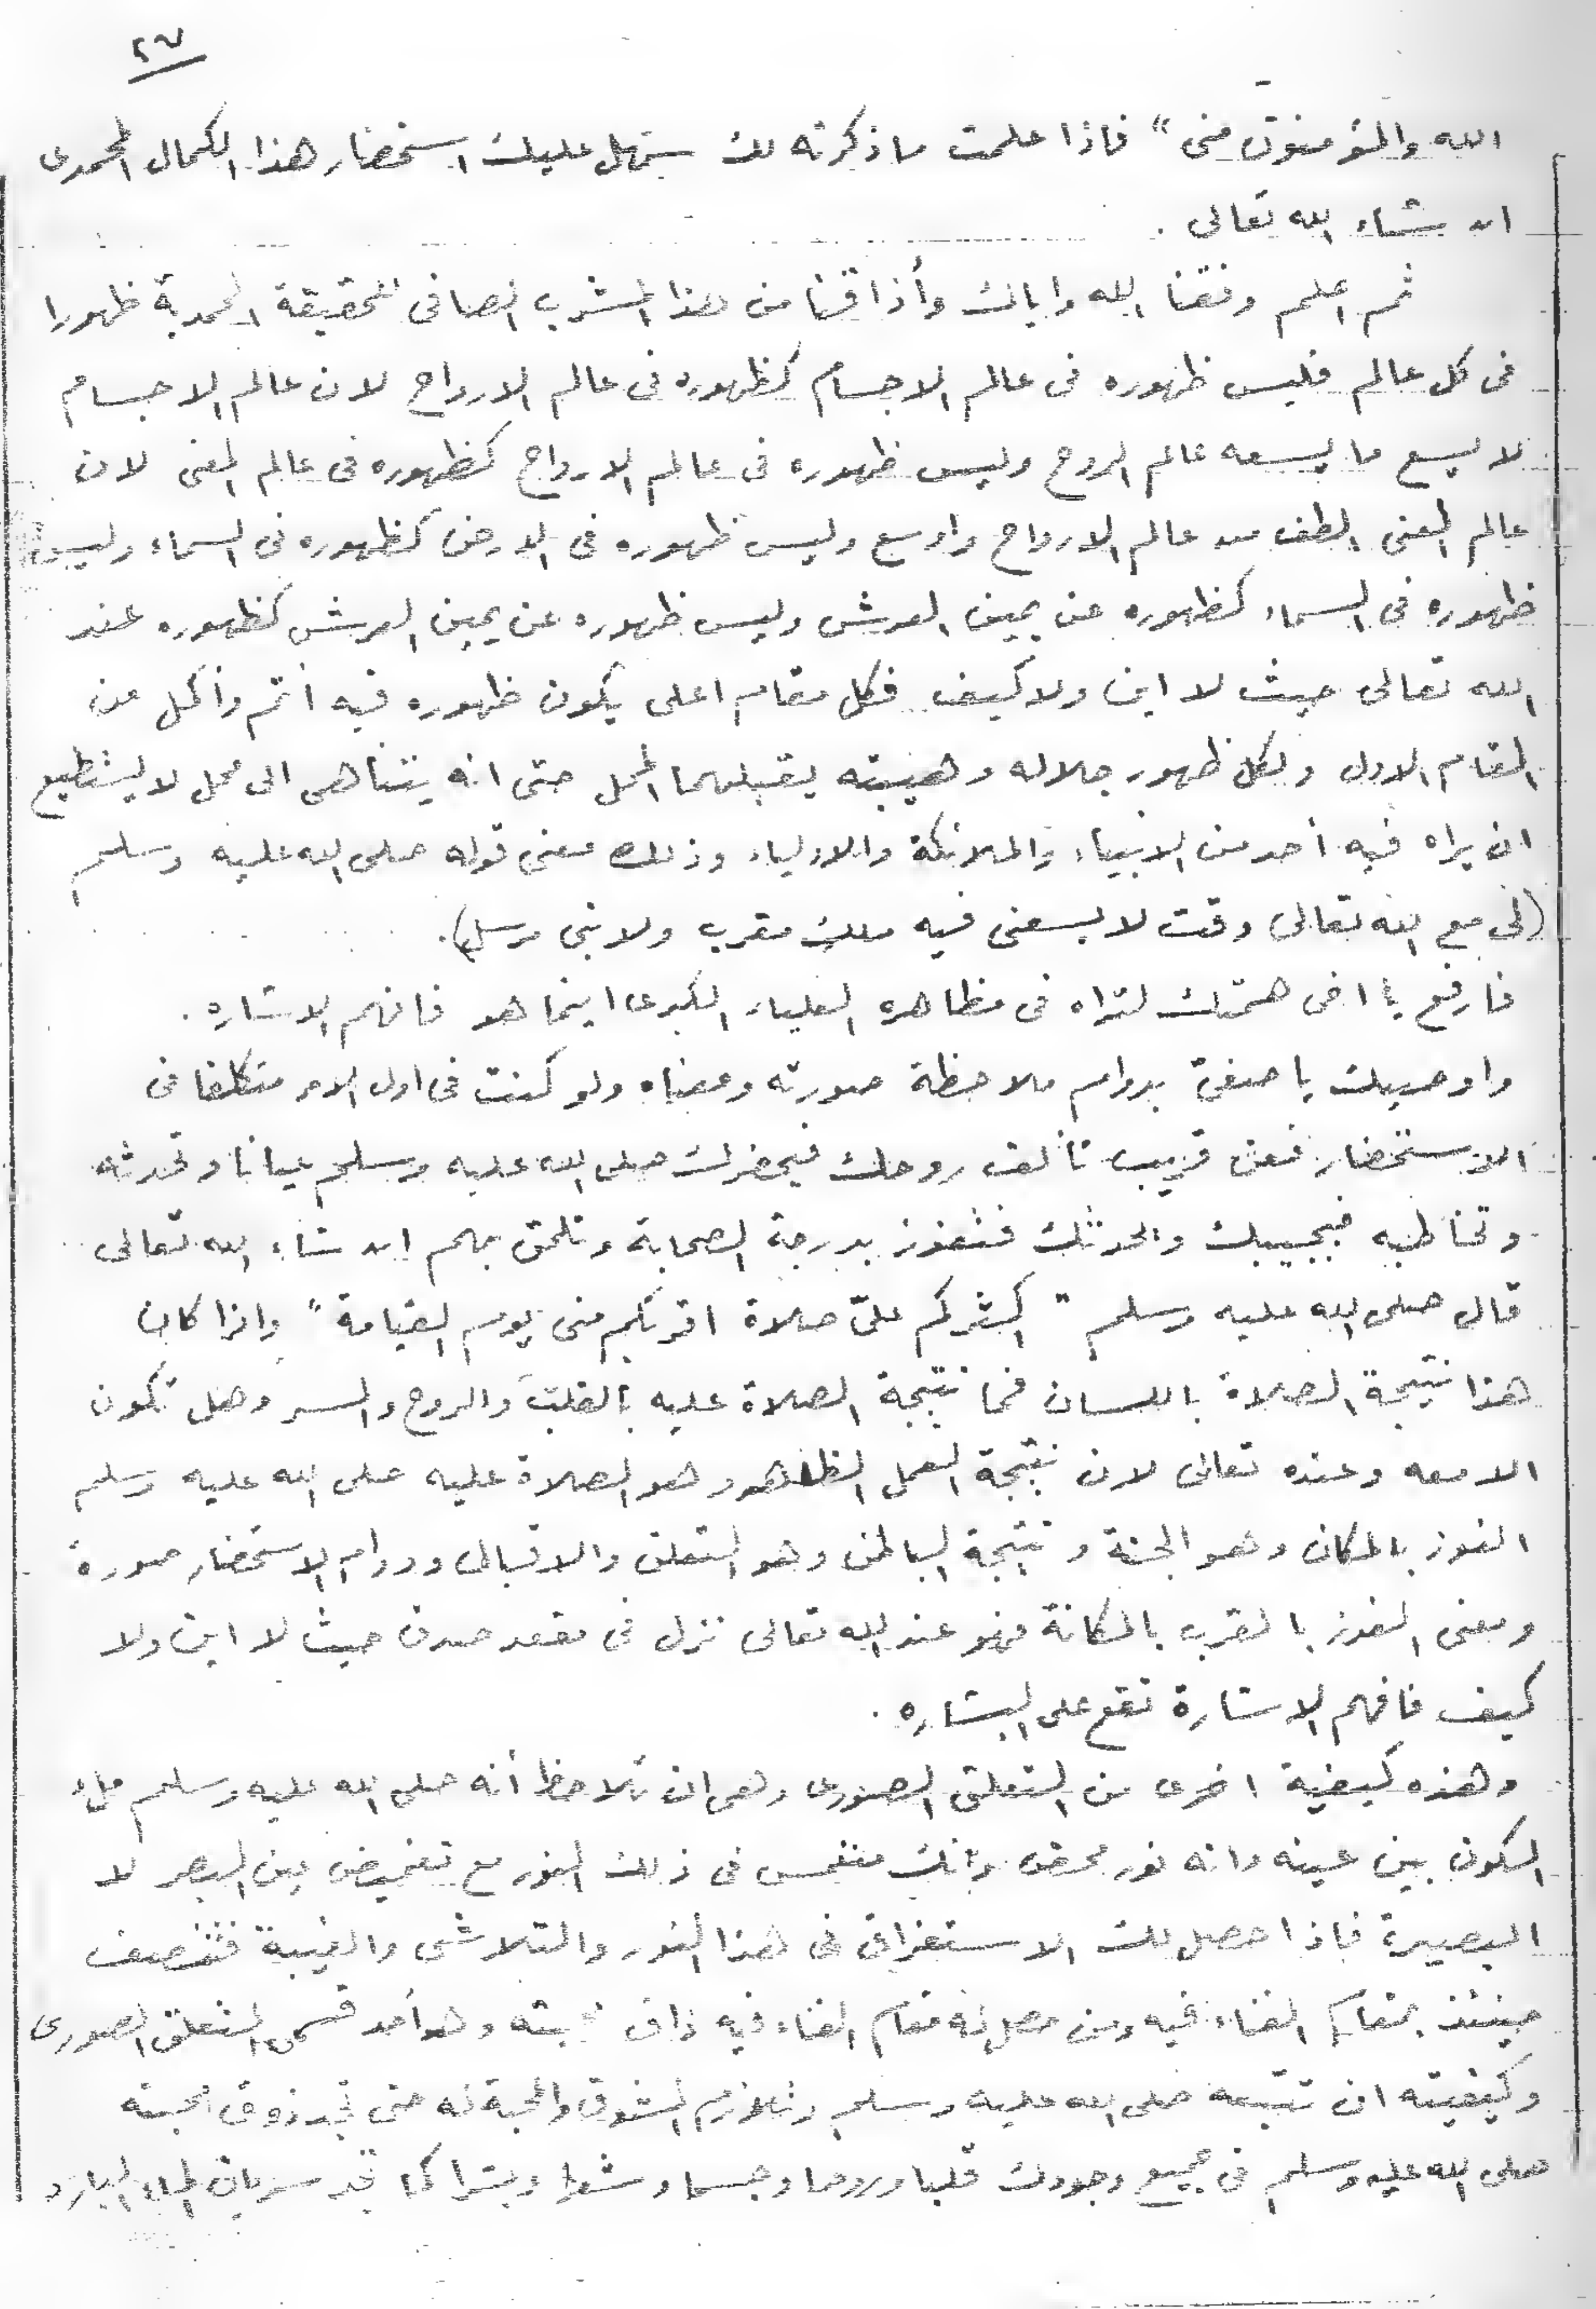 ٢٦
الله والمؤمنون منى " فاذا علمت ما ذكرته لك سهل عليك استحضار هذا الكمال المحمدى
ان شاء الله تعالى .
ثم اعلم وفقنا الله واياك وأذاقنا من هذا المشرب الصافى للحقيقة المحمدية ظهورا
فى كل عالم فليس ظهوره فى عالم الاجسام كظهوره فى عالم الارواح لان عالم الاجسام
لا يسع ما يسعه عالم الروح وليس ظهوره فى عالم الارواح كظهوره فى عالم المعنى لان
عالم المعنى الطف من عالم الارواح واوسع وليس ظهوره فى الارض كظهوره فى السماء وليس
ظهوره فى السماء كظهوره عن يمين العرش وليس ظهوره عن يمين العرش كظهوره عند
الله تعالى حيث لا اين ولا كيف فكل مقام اعلى يكون ظهوره فيه أتم وأكمل من
المقام الاول ولكل ظهور جلاله وهيبته يقبلهما المحل حتى انه يتناهى الى محل لا يستطيع
ان يراه فيه أحد من الانبياء والملائكة والاولياء وذلك معنى قوله صلى الله عليه وسلم
(لى مع الله تعالى وقت لا يسعنى فيه ملك مقرب ولا نبى مرسل).
فارفع يا اخى همتك لتراه فى مظاهره العلياء الكبرى اينما هو فافهم الاشاره .
واوصيك يا صفىّ بدوام ملاحظة صورته ومعناه ولو كنت فى اول الامر متكلفا فى
الاستحضار فعن قريب تألف روحك فيحضرك صلى الله عليه وسلم عيانا وتحدثه
وتخاطبه فيجيبك ويحدثك فتفوز بدرجة الصحابة وتلحق بهم ان شاء الله تعالى
قال صلى الله عليه وسلم " اكثركم علىّ صلاة اقربكم منى يوم القيامة " واذا كان
هذا نتيجة الصلاة باللسان فما نتيجة الصلاة عليه بالقلب والروح والسر وهل تكون
الا معه وعنده تعالى لان نتيجة العمل الظاهر وهو الصلاة عليه صلى الله عليه وسلم
الفوز بالمكان وهو الجنة ونتيجة الباطن وهو التعلق والاقبال ودوام الاستحضار صورة
ومعنى الفوز بالقرب بالمكانة فهو عند الله تعالى نزل فى مقعد صدق حيث لا اين ولا
كيف فافهم الاشارة تقع على البشاره .
وهذه كيفية اخرى من التعلق الصورى وهى ان تلاحظ أنه صلى الله عليه وسلم ملء
الكون بين عينه وانه نور محض وانك منغمس فى ذلك النور مع تغميض عين البصر لا
البصيرة فاذا حصل لك الاستغراق فى هذا النور والتلاشى والغيبة فتتصف
حينئذ بمقام الفناء فيه ومن حصل له مقام الفناء فيه ذاق محبته وهو أحد قسمى التعلق الصورى
وكيفيته ان تتبعه صلى الله عليه وسلم وتلازم الشوق والمحبة له حتى تجد ذوق محبته
صلى الله عليه وسلم فى جميع وجودك قلبا وروحا وجسما وشعرا وبشرا كما تجد سريان الماء البارد